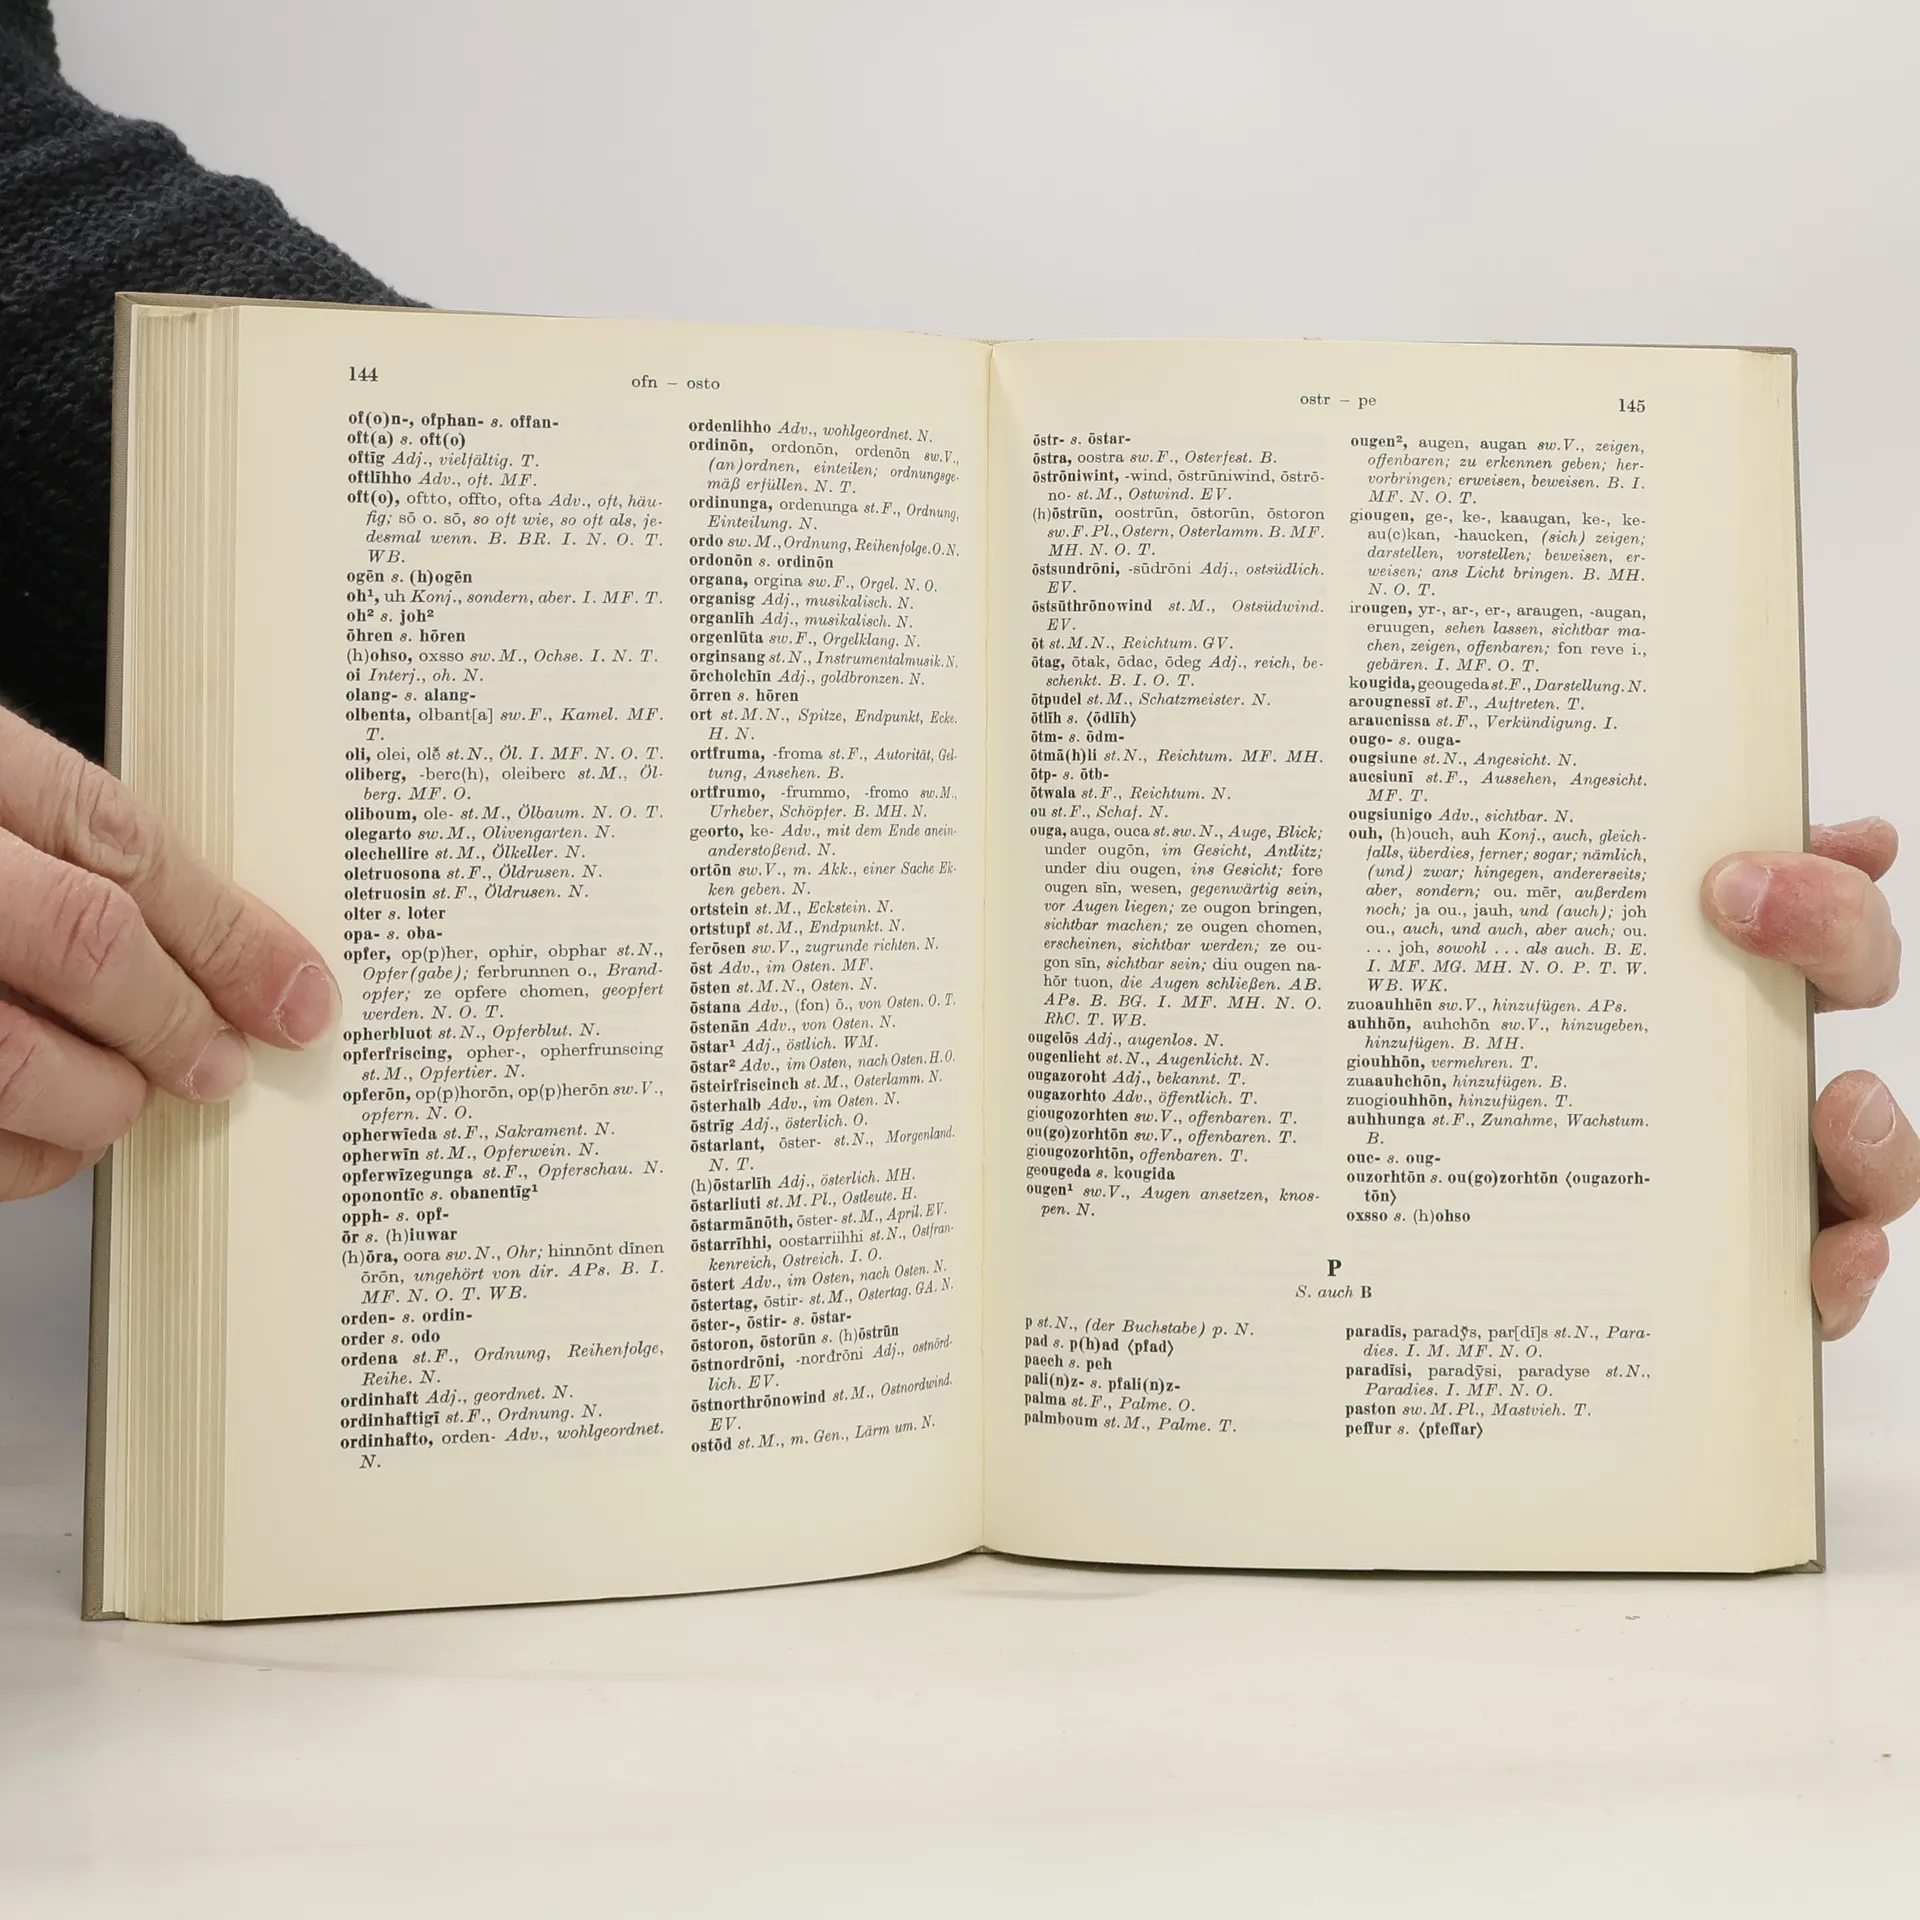 144
ofn – osto
of(o)n-, ofphan- s. offan-
oft(a) s. oft(o)
oftīg Adj., vielfältig. T.
oftlīhho Adv., oft. MF.
oft(o), oftto, offto, ofta Adv., oft, häu-
fig; sō o. sō, so oft wie, so oft als, je-
desmal wenn. B. BR. I. N. O. T.
WB.
ogēn s. (h)ogēn
oh¹, uh Konj., sondern, aber. I. MF. T.
oh² s. joh²
ōhren s. hōren
(h)ohso, oxsso sw.M., Ochse. I. N. T.
oi Interj., oh. N.
olang- s. alang-
olbenta, olbant[a] sw.F., Kamel. MF.
T.
oli, olei, olě st.N., Öl. I. MF. N. O. T.
oliberg, -berc(h), oleiberc st.M., Öl-
berg. MF. O.
oliboum, ole- st.M., Ölbaum. N. O. T.
olegarto sw.M., Olivengarten. N.
olechellire st.M., Ölkeller. N.
oletruosona st.F., Öldrusen. N.
oletruosin st.F., Öldrusen. N.
olter s. loter
opa- s. oba-
opfer, op(p)her, ophir, obphar st.N.,
Opfer(gabe); ferbrunnen o., Brand-
opfer; ze opfere chomen, geopfert
werden. N. O. T.
opherbluot st.N., Opferblut. N.
opferfriscing, opher-, opherfrunscing
st.M., Opfertier. N.
opferōn, op(p)horōn, op(p)herōn sw.V.,
opfern. N. O.
opherwīeda st.F., Sakrament. N.
opherwīn st.M., Opferwein. N.
opferwīzegunga st.F., Opferschau. N.
oponontīc s. obanentīg¹
opph- s. opf-
ōr s. (h)iuwar
(h)ōra, oora sw.N., Ohr; hinnōnt dīnen
ōrōn, ungehört von dir. APs. B. I.
MF. N. O. T. WB.
orden- s. ordin-
order s. odo
ordena st.F., Ordnung, Reihenfolge,
Reihe. N.
ordinhaft Adj., geordnet. N.
ordinhaftigī st.F., Ordnung. N.
ordinhafto, orden- Adv., wohlgeordnet.
N.
ordenlihho Adv., wohlgeordnet. N.
ordinōn, ordonōn, ordenōn sw.V.,
(an)ordnen, einteilen; ordnungsge-
mäß erfüllen. N. T.
ordinunga, ordenunga st.F., Ordnung,
Einteilung. N.
ordo sw.M., Ordnung, Reihenfolge. O. N.
ordonōn s. ordinōn
organa, orgina sw.F., Orgel. N. O.
organisg Adj., musikalisch. N.
organlīh Adj., musikalisch. N.
orgenlūta sw.F., Orgelklang. N.
orginsang st.N., Instrumentalmusik. N.
ōrcholchīn Adj., goldbronzen. N.
ōrren s. hōren
ort st.M.N., Spitze, Endpunkt, Ecke.
H. N.
ortfruma, -froma st.F., Autorität, Gel-
tung, Ansehen. B.
ortfrumo, -frummo, -fromo sw.M.,
Urheber, Schöpfer. B. MH. N.
georto, ke- Adv., mit dem Ende anein-
anderstoßend. N.
ortōn sw.V., m. Akk., einer Sache Ek-
ken geben. N.
ortstein st.M., Eckstein. N.
ortstupf st.M., Endpunkt. N.
ferōsen sw.V., zugrunde richten. N.
ōst Adv., im Osten. MF.
ōsten st.M.N., Osten. N.
ōstana Adv., (fon) ō., von Osten. O. T.
ōstenān Adv., von Osten. N.
ōstar¹ Adj., östlich. WM.
ōstar² Adv., im Osten, nach Osten. H. O.
ōsteirfriscinch st.M., Osterlamm. N.
ōsterhalb Adv., im Osten. N.
ōstrīg Adj., österlich. O.
ōstarlant, ōster- st.N., Morgenland.
N. T.
(h)ōstarlīh Adj., österlich. MH.
ōstarliuti st.M.Pl., Ostleute. H.
ōstarmānōth, ōster- st.M., April. EV.
ōstarrīhhi, oostarriihhi st.N., Ostfran-
kenreich, Ostreich. I. O.
ōstert Adv., im Osten, nach Osten. N.
ōstertag, ōstir- st.M., Ostertag. GA. N.
ōster-, ōstir- s. ōstar-
ōstoron, ōstorūn s. (h)ōstrūn
ōstnordrōni, -norđrōni Adj., ostnörd-
lich. EV.
ōstnorthrōnowind st.M., Ostnordwind.
EV.
ostōd st.M., m. Gen., Lärm um. N.
ostr – pe
145
ōstr- s. ōstar-
ōstra, oostra sw.F., Osterfest. B.
ōstrōniwint, -wind, ōstrūniwind, ōstrō-
no- st.M., Ostwind. EV.
(h)ōstrūn, oostrūn, ōstorūn, ōstoron
sw.F.Pl., Ostern, Osterlamm. B. MF.
MH. N. O. T.
ōstsundrōni, -sūdrōni Adj., ostsüdlich.
EV.
ōstsūthrōnowind st.M., Ostsüdwind.
EV.
ōt st.M.N., Reichtum. GV.
ōtag, ōtak, ōdac, ōdeg Adj., reich, be-
schenkt. B. I. O. T.
ōtpudel st.M., Schatzmeister. N.
ōtlīh s. ⟨ōdlīh⟩
ōtm- s. ōdm-
ōtmā(h)li st.N., Reichtum. MF. MH.
ōtp- s. ōtb-
ōtwala st.F., Reichtum. N.
ou st.F., Schaf. N.
ouga, auga, ouca st.sw.N., Auge, Blick;
under ougōn, im Gesicht, Antlitz;
under diu ougen, ins Gesicht; fore
ougen sīn, wesen, gegenwärtig sein,
vor Augen liegen; ze ougon bringen,
sichtbar machen; ze ougen chomen,
erscheinen, sichtbar werden; ze ou-
gon sīn, sichtbar sein; diu ougen na-
hōr tuon, die Augen schließen. AB.
APs. B. BG. I. MF. MH. N. O.
RhC. T. WB.
ougelōs Adj., augenlos. N.
ougenlieht st.N., Augenlicht. N.
ougazoroht Adj., bekannt. T.
ougazorhto Adv., öffentlich. T.
giougozorhten sw.V., offenbaren. T.
ou(go)zorhtōn sw.V., offenbaren. T.
giougozorhtōn, offenbaren. T.
geougeda s. kougida
ougen¹ sw.V., Augen ansetzen, knos-
pen. N.
ougen², augen, augan sw.V., zeigen,
offenbaren; zu erkennen geben; her-
vorbringen; erweisen, beweisen. B. I.
MF. N. O. T.
giougen, ge-, ke-, kaaugan, ke-, ke-
au(c)kan, -haucken, (sich) zeigen;
darstellen, vorstellen; beweisen, er-
weisen; ans Licht bringen. B. MH.
N. O. T.
irougen, yr-, ar-, er-, araugen, -augan,
eruugen, sehen lassen, sichtbar ma-
chen, zeigen, offenbaren; fon reve i.,
gebären. I. MF. O. T.
kougida, geougeda st.F., Darstellung. N.
arougnessi st.F., Auftreten. T.
araucnissa st.F., Verkündigung. I.
ougo- s. ouga-
ougsiune st.N., Angesicht. N.
aucsiunī st.F., Aussehen, Angesicht.
MF. T.
ougsiunigo Adv., sichtbar. N.
ouh, (h)ouch, auh Konj., auch, gleich-
falls, überdies, ferner; sogar; nämlich,
(und) zwar; hingegen, andererseits;
aber, sondern; ou. mēr, außerdem
noch; ja ou., jauh, und (auch); joh
ou., auch, und auch, aber auch; ou.
. . . joh, sowohl . . . als auch. B. E.
I. MF. MG. MH. N. O. P. T. W.
WB. WK.
zuoauhhēn sw.V., hinzufügen. APs.
auhhōn, auhchōn sw.V., hinzugeben,
hinzufügen. B. MH.
giouhhōn, vermehren. T.
zuaauhchōn, hinzufügen. B.
zuogiouhhōn, hinzufügen. T.
auhhunga st.F., Zunahme, Wachstum.
B.
ouc- s. oug-
ouzorhtōn s. ou(go)zorhtōn ⟨ougazorh-
tōn⟩
oxsso s. (h)ohso
P
S. auch B
p st.N., (der Buchstabe) p. N.
pad s. p(h)ad ⟨pfad⟩
paech s. peh
pali(n)z- s. pfali(n)z-
palma st.F., Palme. O.
palmboum st.M., Palme. T.
paradīs, paradȳs, par[dī]s st.N., Para-
dies. I. M. MF. N. O.
paradīsi, paradȳsi, paradyse st.N.,
Paradies. I. MF. N. O.
paston sw.M.Pl., Mastvieh. T.
peffur s. ⟨pfeffar⟩